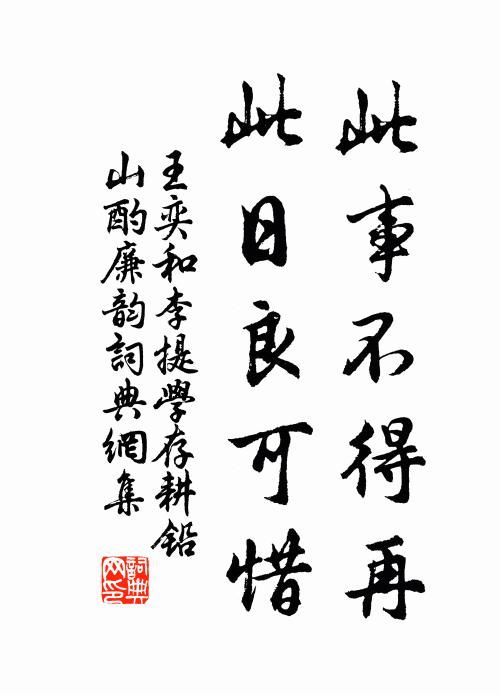 此事不得再
此日良可惜
王奕和李提學存耕鉛
山酌廉韵詞典網集
詞典
网印